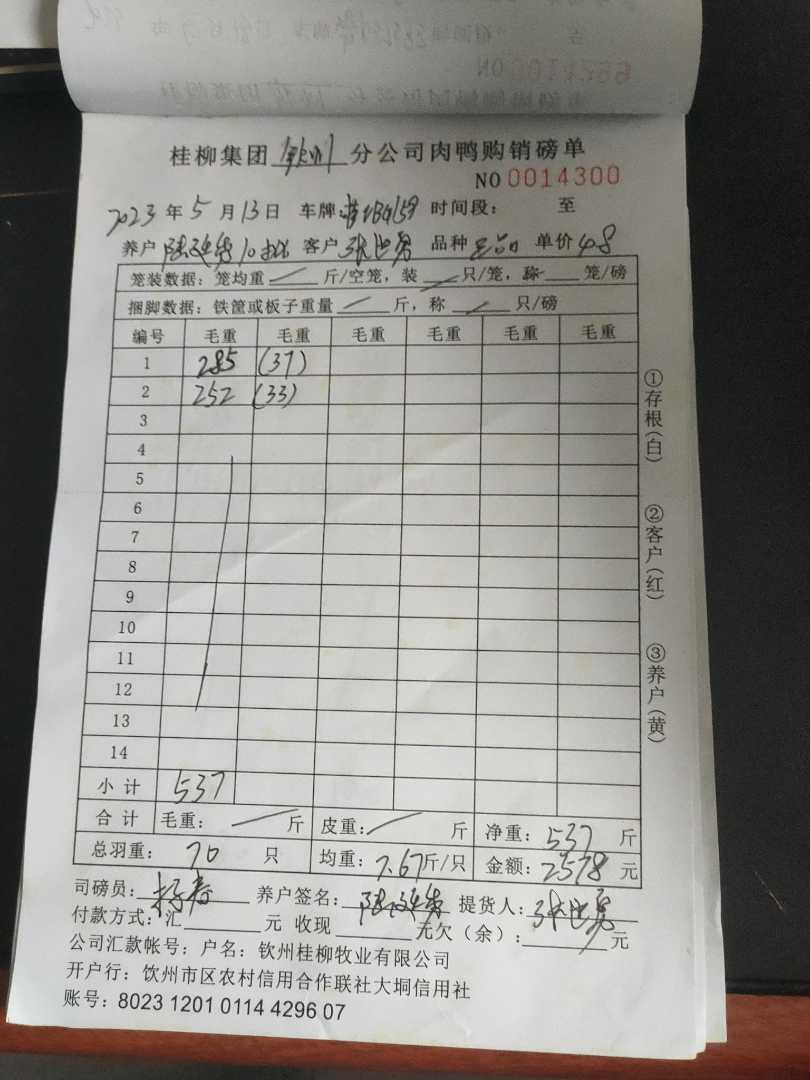 桂柳集团 钦州 分公司肉鸭购销磅单
NO 0014300
2023 年 5 月 13 日 车牌: 时间段: 至
养户 客户 张世勇 品种 正品 单价 4.8
笼装数据: 笼均重 斤/空笼, 装 只/笼, 称 笼/磅
捆脚数据: 铁筐或板子重量 斤, 称 只/磅
编号 毛重 毛重 毛重 毛重 毛重 毛重
1 285 (37)
2 252 (33)
3
4
5
6
7
8
9
10
11
12
13
14
小计 537
合计 毛重: 斤 皮重: 斤 净重: 537 斤
总羽重: 70 只 均重: 7.67 斤/只 金额: 2578 元
司磅员: 养户签名: 提货人: 张世勇
付款方式: 汇 元 收现 无欠(余): 元
公司汇款帐号: 户名: 钦州桂柳牧业有限公司
开户行: 饮州市区农村信用合作联社大垌信用社
账号: 8023 1201 0114 4296 07
①存根(白)
②客户(红)
③养户(黄)